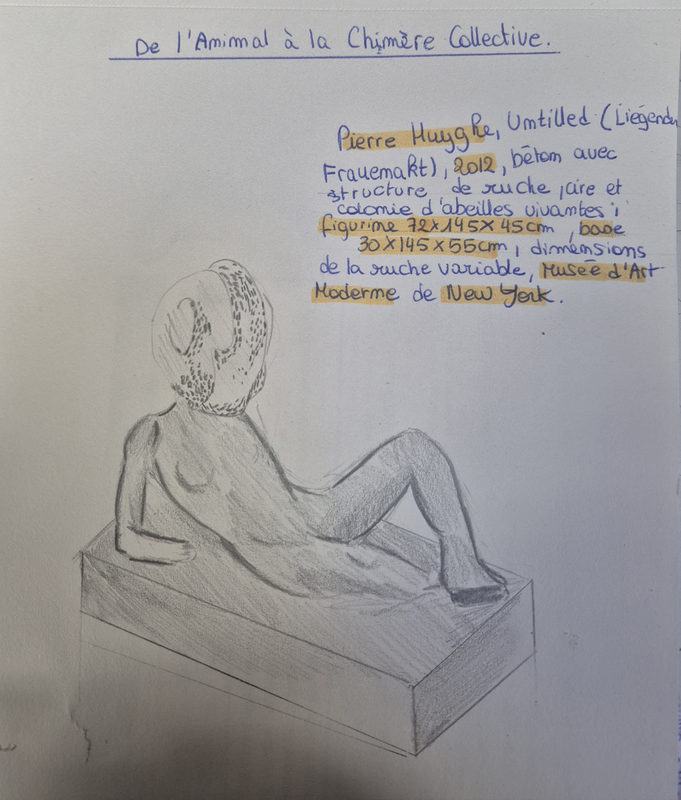 De l'Animal à la Chimère Collective.
Pierre Huyghe, Untilled (Liegender
Frauemakt), 2012, bêton avec
structure de ruche, cire et
colonie d'abeilles vivantes;
figurine 72x145x45cm, base
30x145x55cm, dimensions
de la ruche variable, Musée d'Art
Moderne de New York.